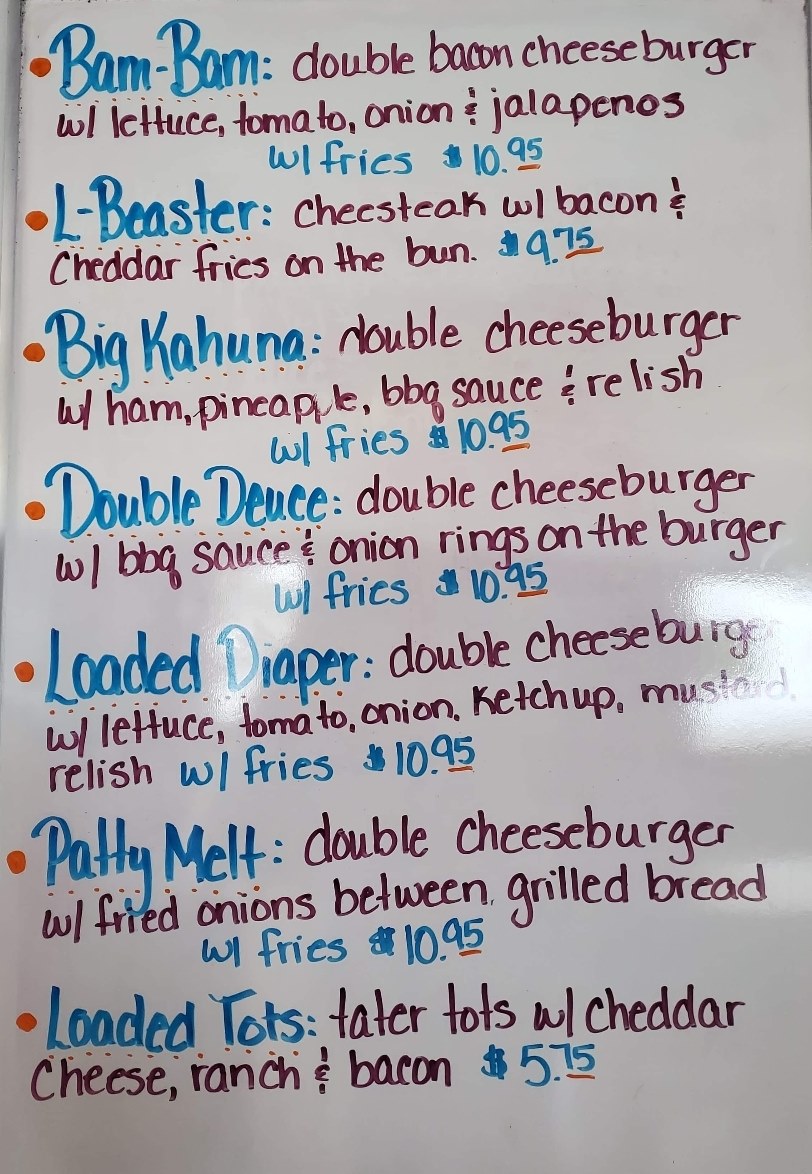 • Bam-Bam: double bacon cheeseburger
w/ lettuce, tomato, onion & jalapenos
w/ fries $10.95
• L-Beaster: cheesteak w/ bacon &
Cheddar fries on the bun. $9.75
• Big Kahuna: double cheeseburger
w/ ham, pineapple, bbq sauce & relish
w/ fries $10.95
• Double Deuce: double cheeseburger
w/ bbq sauce & onion rings on the burger
w/ fries $10.95
• Loaded Diaper: double cheeseburger
w/ lettuce, tomato, onion, Ketchup, mustard,
relish w/ fries $10.95
• Patty Melt: double cheeseburger
w/ fried onions between grilled bread
w/ fries $10.95
• Loaded Tots: tater tots w/ cheddar
Cheese, ranch & bacon $5.75